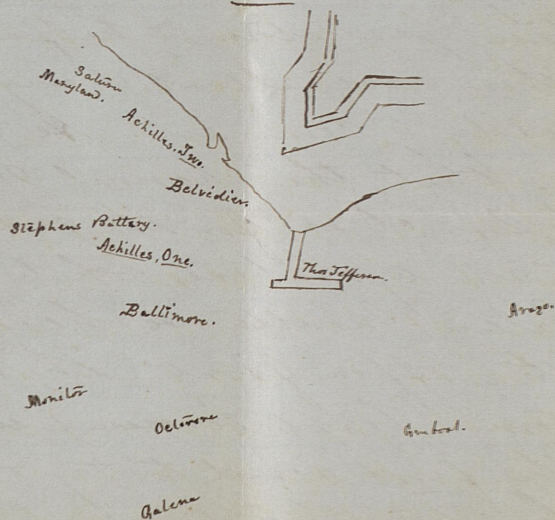 Saturn
Maryland.
Achilles, Two.
Belvédier.
Stephens Battery.
Achilles, One.
Thos Jefferson.
Baltimore.
Arago.
Monitor
Octorora
Gunboat.
Galena